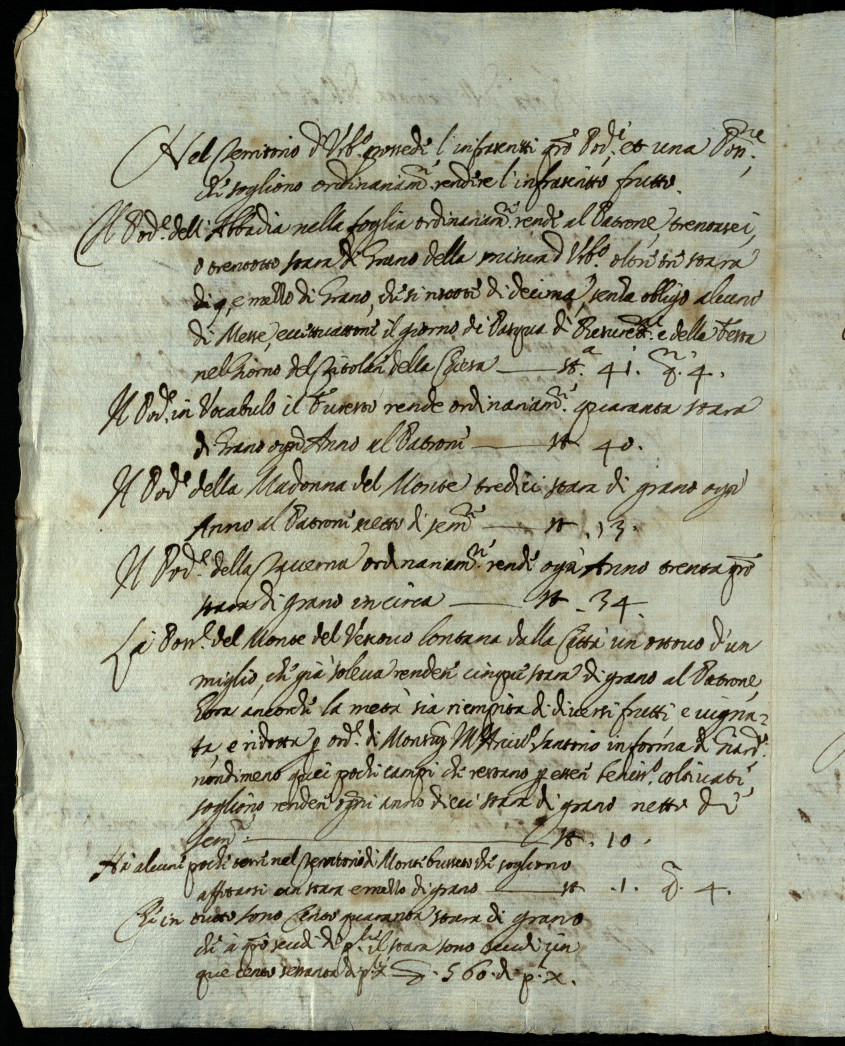 Nel Territorio d'Urb.o possede l'infrascritti qro Pod.i et una Poss.ne
che sogliono ordinariam.te rendere l'infrascritto frutto.
Il Pod.e dell'Abbadia nella foglia ordinariam.te rende al Patrone trentasei,
o trentotto stara di Grano della misura d'Urb.o oltre tre stara
e mezzo di Grano, che si riscote di decima, senza obligo alcuno
di Messe, eccettuatone il giorno di Pasqua di Resurett.e e della festa
nel Giorno del Titolar della Chiesa —— st.a 41. q. 4.
Il Pod.e in Vocabulo il Turetto rende ordinariam.te quaranta stara
di Grano ogni Anno al Patrone —— st 40.
Il Pod.e della Madonna del Monte tredici stara di grano ogni
Anno al Patrone netto di seme —— st. 13.
Il Pod.e della Taverna ordinariam.te rende ogni Anno trenta qro
stara di grano in circa —— st. 34.
La Poss.e del Monte del Vescovo lontana dalla Città un ottavo d'un
miglio, che già soleva rendere cinque stara di grano al Patrone,
Hora ancorche la metà sia riempita di diversi frutti e vigna-
ta, e ridotta p ord.e di Monsig. Arciv.o Santorio in forma di Giard.o
nondimeno quei pochi campi che restano p esser coltivati
sogliono rendere ogni anno dieci stara di grano netto di
seme —— st. 10.
Hà alcune poche terre nel Territorio di Monte che sogliono
affittarsi un stara e mezzo di grano —— st .1. q. 4.
Che in tutto sono Cento quaranta stara di grano
che à qro scudi di p.li il stara sono scudi cin
que cento sessanta di p.li x —— 560. di p.li x.